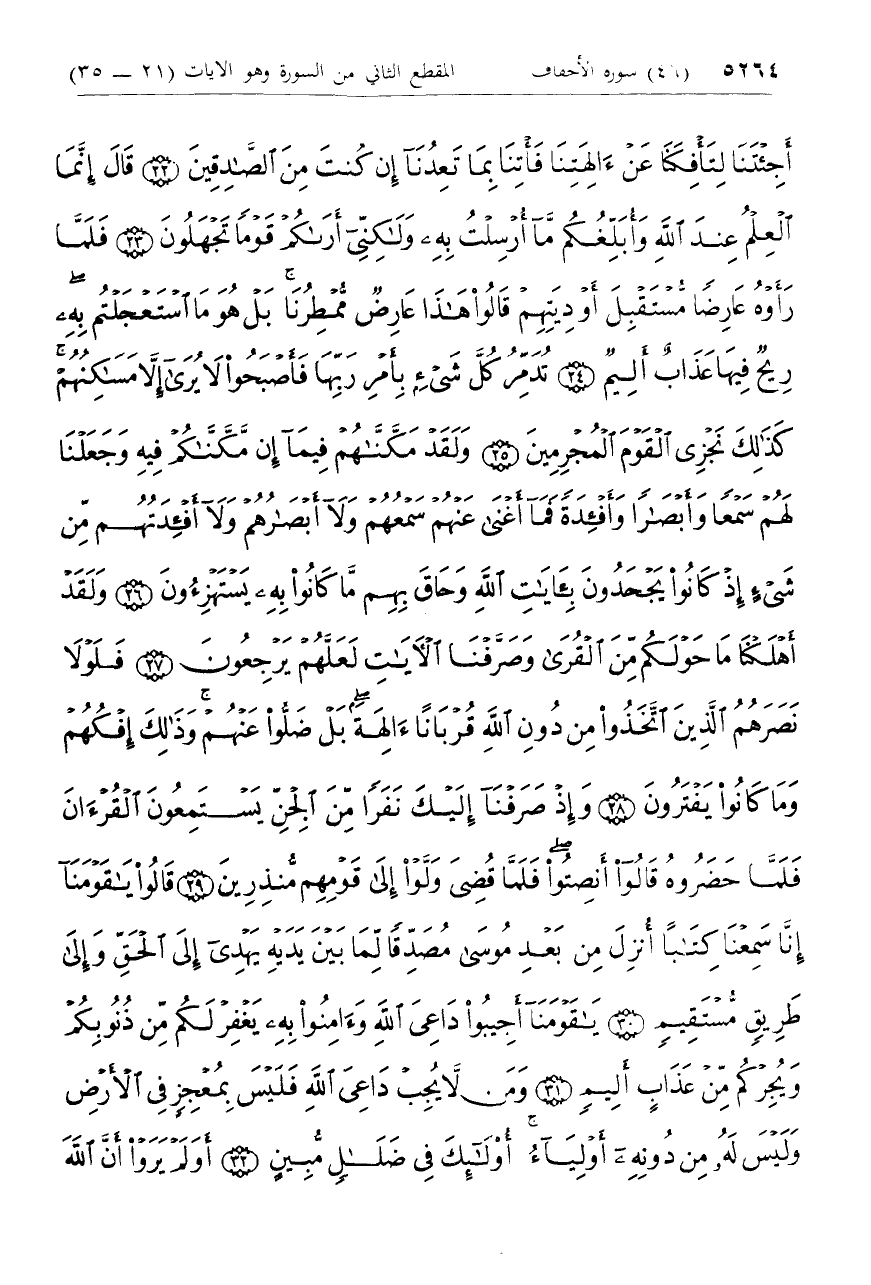 ٥٢٦٤ (٤٦) سورة الأحقاف المقطع الثاني من السورة وهو الآيات (٢١ — ٣٥)
أَجِئْتَنَا لِتَأْفِكَنَا عَنْ ءَالِهَتِنَا فَأْتِنَا بِمَا تَعِدُنَآ إِن كُنتَ مِنَ ٱلصَّـٰدِقِينَ ﴿٢٢﴾ قَالَ إِنَّمَا
ٱلْعِلْمُ عِندَ ٱللَّهِ وَأُبَلِّغُكُم مَّآ أُرْسِلْتُ بِهِۦ وَلَـٰكِنِّىٓ أَرَىٰكُمْ قَوْمًا تَجْهَلُونَ ﴿٢٣﴾ فَلَمَّا
رَأَوْهُ عَارِضًا مُّسْتَقْبِلَ أَوْدِيَتِهِمْ قَالُوا۟ هَـٰذَا عَارِضٌ مُّمْطِرُنَا ۚ بَلْ هُوَ مَا ٱسْتَعْجَلْتُم بِهِۦ ۖ
رِيحٌ فِيهَا عَذَابٌ أَلِيمٌ ﴿٢٤﴾ تُدَمِّرُ كُلَّ شَىْءٍۭ بِأَمْرِ رَبِّهَا فَأَصْبَحُوا۟ لَا يُرَىٰٓ إِلَّا مَسَـٰكِنُهُمْ ۚ
كَذَٰلِكَ نَجْزِى ٱلْقَوْمَ ٱلْمُجْرِمِينَ ﴿٢٥﴾ وَلَقَدْ مَكَّنَّـٰهُمْ فِيمَآ إِن مَّكَّنَّـٰكُمْ فِيهِ وَجَعَلْنَا
لَهُمْ سَمْعًا وَأَبْصَـٰرًا وَأَفْـِٔدَةً فَمَآ أَغْنَىٰ عَنْهُمْ سَمْعُهُمْ وَلَآ أَبْصَـٰرُهُمْ وَلَآ أَفْـِٔدَتُهُم مِّن
شَىْءٍ إِذْ كَانُوا۟ يَجْحَدُونَ بِـَٔايَـٰتِ ٱللَّهِ وَحَاقَ بِهِم مَّا كَانُوا۟ بِهِۦ يَسْتَهْزِءُونَ ﴿٢٦﴾ وَلَقَدْ
أَهْلَكْنَا مَا حَوْلَكُم مِّنَ ٱلْقُرَىٰ وَصَرَّفْنَا ٱلْـَٔايَـٰتِ لَعَلَّهُمْ يَرْجِعُونَ ﴿٢٧﴾ فَلَوْلَا
نَصَرَهُمُ ٱلَّذِينَ ٱتَّخَذُوا۟ مِن دُونِ ٱللَّهِ قُرْبَانًا ءَالِهَةًۢ ۖ بَلْ ضَلُّوا۟ عَنْهُمْ ۚ وَذَٰلِكَ إِفْكُهُمْ
وَمَا كَانُوا۟ يَفْتَرُونَ ﴿٢٨﴾ وَإِذْ صَرَفْنَآ إِلَيْكَ نَفَرًا مِّنَ ٱلْجِنِّ يَسْتَمِعُونَ ٱلْقُرْءَانَ
فَلَمَّا حَضَرُوهُ قَالُوٓا۟ أَنصِتُوا۟ ۖ فَلَمَّا قُضِىَ وَلَّوْا۟ إِلَىٰ قَوْمِهِم مُّنذِرِينَ ﴿٢٩﴾ قَالُوا۟ يَـٰقَوْمَنَآ
إِنَّا سَمِعْنَا كِتَـٰبًا أُنزِلَ مِنۢ بَعْدِ مُوسَىٰ مُصَدِّقًا لِّمَا بَيْنَ يَدَيْهِ يَهْدِىٓ إِلَى ٱلْحَقِّ وَإِلَىٰ
طَرِيقٍ مُّسْتَقِيمٍ ﴿٣٠﴾ يَـٰقَوْمَنَآ أَجِيبُوا۟ دَاعِىَ ٱللَّهِ وَءَامِنُوا۟ بِهِۦ يَغْفِرْ لَكُم مِّن ذُنُوبِكُمْ
وَيُجِرْكُم مِّنْ عَذَابٍ أَلِيمٍ ﴿٣١﴾ وَمَن لَّا يُجِبْ دَاعِىَ ٱللَّهِ فَلَيْسَ بِمُعْجِزٍ فِى ٱلْأَرْضِ
وَلَيْسَ لَهُۥ مِن دُونِهِۦٓ أَوْلِيَآءُ ۚ أُو۟لَـٰٓئِكَ فِى ضَلَـٰلٍ مُّبِينٍ ﴿٣٢﴾ أَوَلَمْ يَرَوْا۟ أَنَّ ٱللَّهَ